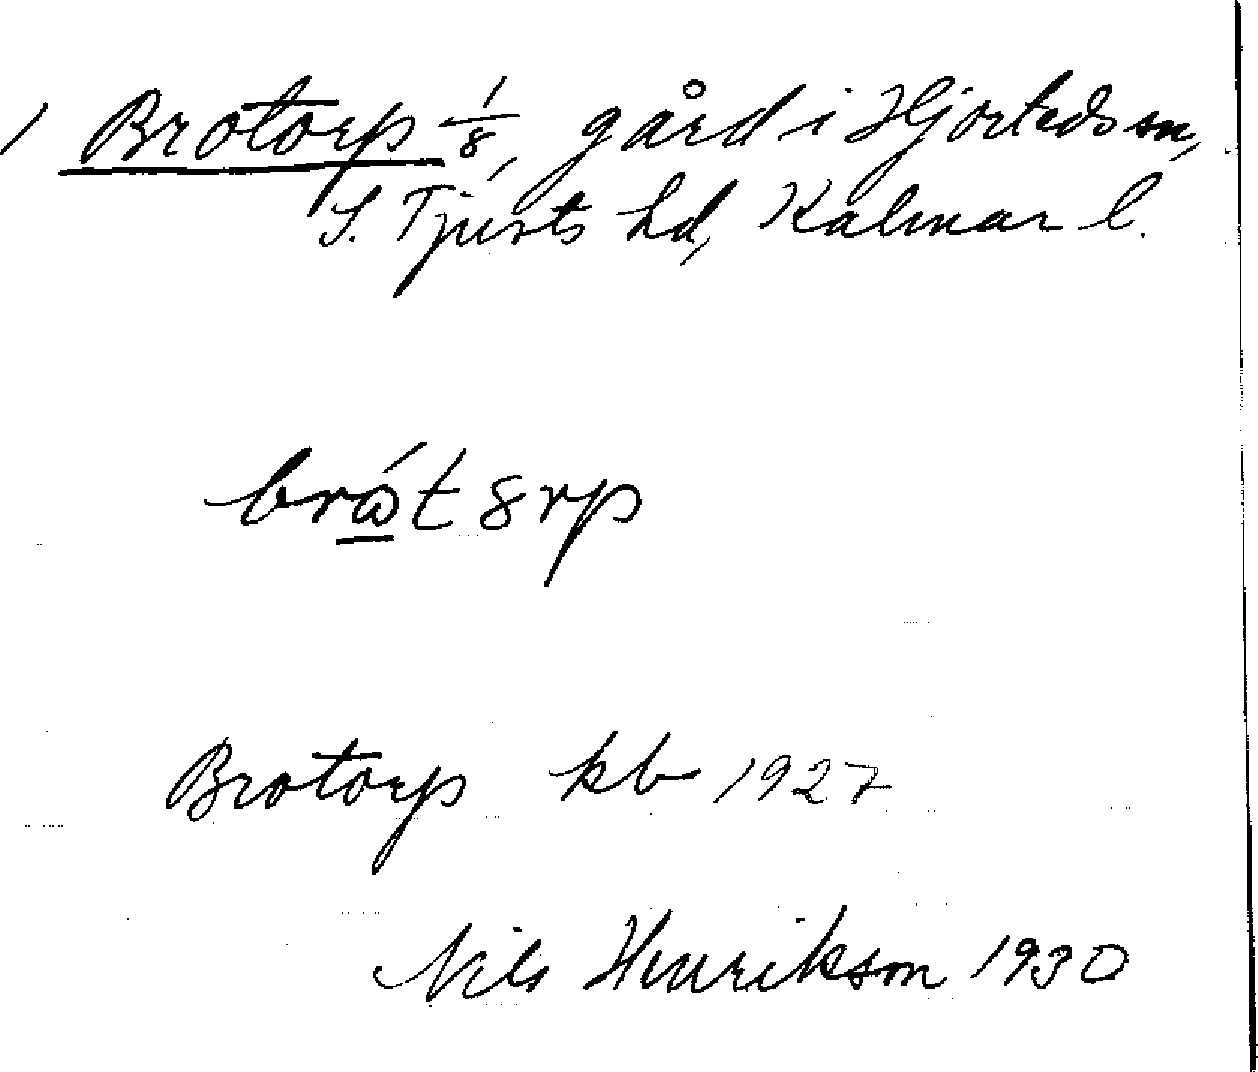 Brotorp 1/8, gård i Hjorteds sn,
S. Tjusts hd, Kalmar l.
brώt8rp
Brotorp kb 1927
Nils Henrikson 1930